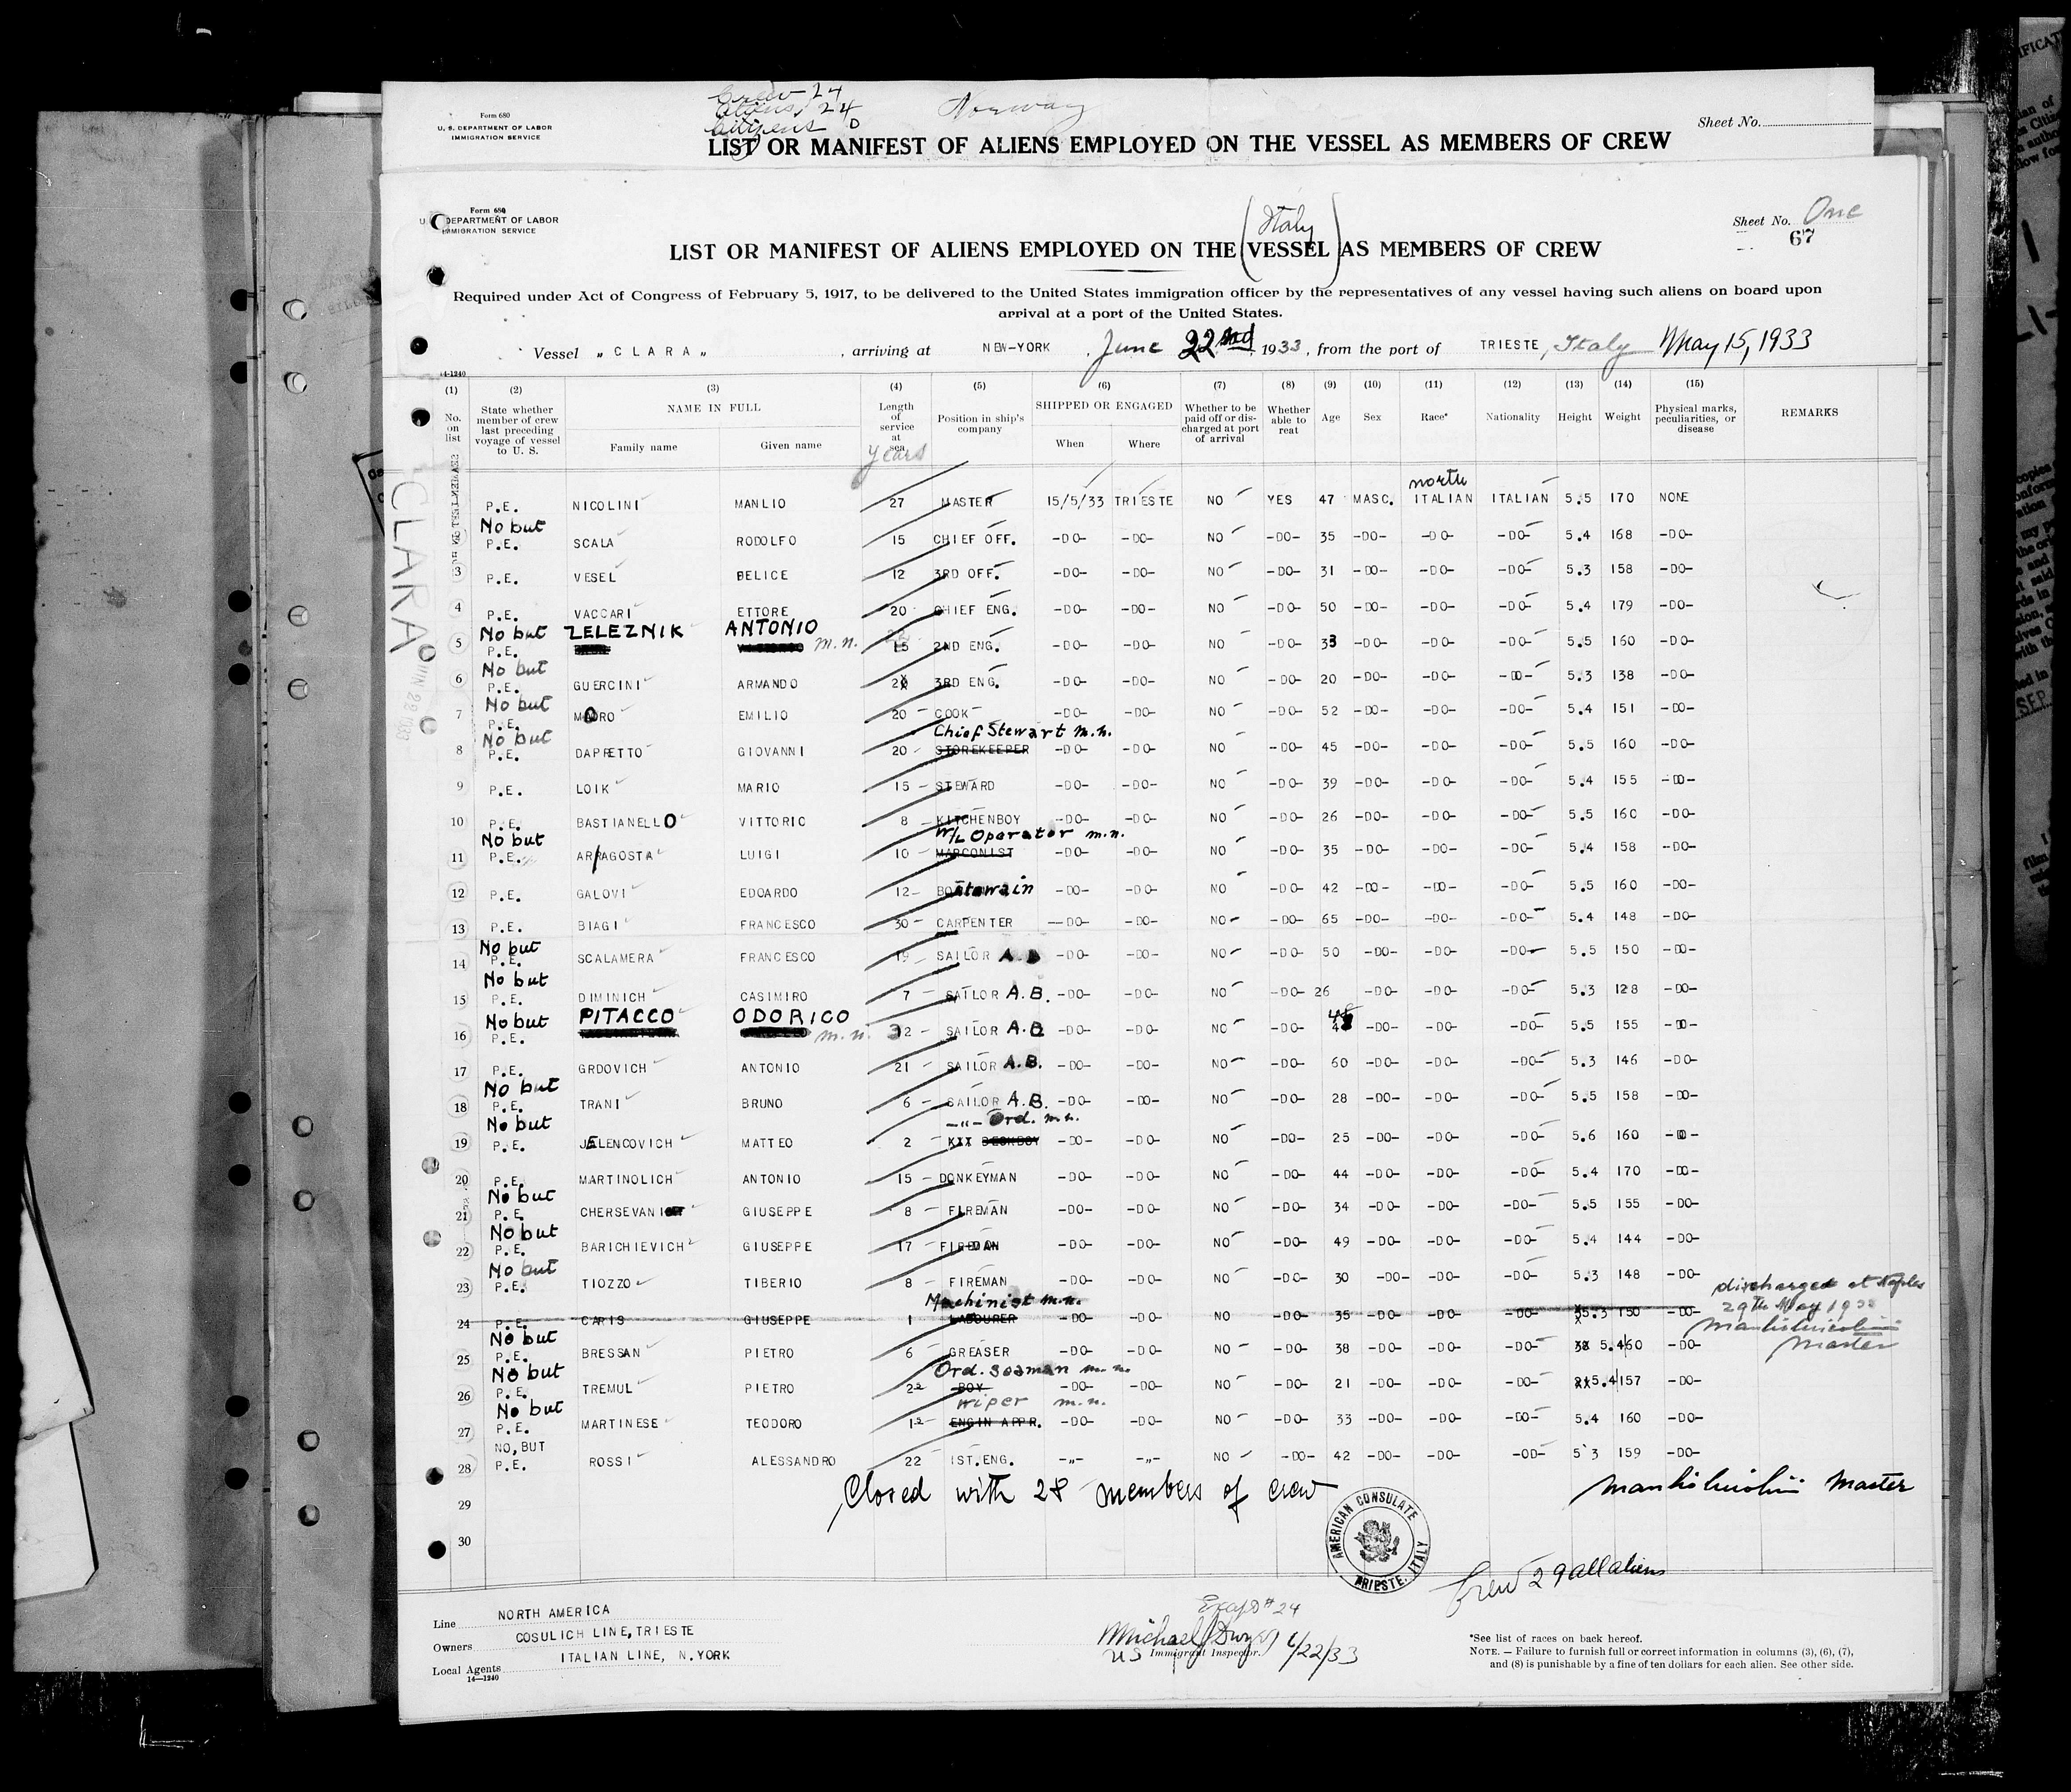 Crew 24
Aliens 24
Citizens 0
Norway
Form 680
U. S. DEPARTMENT OF LABOR
IMMIGRATION SERVICE
Sheet No.
LIST OR MANIFEST OF ALIENS EMPLOYED ON THE VESSEL AS MEMBERS OF CREW
Form 680
U DEPARTMENT OF LABOR
IMMIGRATION SERVICE
(Italy)
Sheet No. One
67
LIST OR MANIFEST OF ALIENS EMPLOYED ON THE VESSEL AS MEMBERS OF CREW
Required under Act of Congress of February 5, 1917, to be delivered to the United States immigration officer by the representatives of any vessel having such aliens on board upon
arrival at a port of the United States.
Vessel „ CLARA „ , arriving at NEW-YORK , June 22nd, 1933, from the port of TRIESTE, Italy May 15, 1933
14-1240
(1) (2) (3) (4) (5) (6) (7) (8) (9) (10) (11) (12) (13) (14) (15)
No. on list
State whether member of crew last preceding voyage of vessel to U. S.
NAME IN FULL
Family name Given name
Length of service at sea
years
Position in ship's company
SHIPPED OR ENGAGED
When Where
Whether to be paid off or discharged at port of arrival
Whether able to reat
Age Sex Race* Nationality Height Weight
Physical marks, peculiarities, or disease
REMARKS
CLARA
JUN 22 1933
north
P.E. NICOLINI MANLIO 27 MASTER 15/5/33 TRIESTE NO YES 47 MASC. ITALIAN ITALIAN 5.5 170 NONE
No but
P.E. SCALA RODOLFO 15 CHIEF OFF. -DO- -DO- NO -DO- 35 -DO- -DO- -DO- 5.4 168 -DO-
3 P.E. VESEL BELICE 12 3RD OFF. -DO- -DO- NO -DO- 31 -DO- -DO- -DO- 5.3 158 -DO-
4 P.E. VACCARI ETTORE 20 CHIEF ENG. -DO- -DO- NO -DO- 50 -DO- -DO- -DO- 5.4 179 -DO-
No but ZELEZNIK ANTONIO m.n.
5 P.E. 15 2ND ENG. -DO- -DO- NO -DO- 33 -DO- -DO- -DO- 5.5 160 -DO-
No but
6 P.E. GUERCINI ARMANDO 2 3RD ENG. -DO- -DO- NO -DO- 20 -DO- -DO- -DO- 5.3 138 -DO-
No but
7 P.E. MORO EMILIO 20 COOK -DO- -DO- NO -DO- 52 -DO- -DO- -DO- 5.4 151 -DO-
No but Chief Stewart m.n.
8 P.E. DAPRETTO GIOVANNI 20 STOREKEEPER -DO- -DO- NO -DO- 45 -DO- -DO- -DO- 5.5 160 -DO-
9 P.E. LOIK MARIO 15 STEWARD -DO- -DO- NO -DO- 39 -DO- -DO- -DO- 5.4 155 -DO-
10 P.E. BASTIANELLO VITTORIO 8 KITCHENBOY -DO- -DO- NO -DO- 26 -DO- -DO- -DO- 5.5 160 -DO-
No but W/L Operator m.n.
11 P.E. ARAGOSTA LUIGI 10 MARCONIST -DO- -DO- NO -DO- 35 -DO- -DO- -DO- 5.4 158 -DO-
12 P.E. GALOVI EDOARDO 12 BOatswain -DO- -DO- NO -DO- 42 -DO- -DO- -DO- 5.5 160 -DO-
13 P.E. BIAGI FRANCESCO 30 CARPENTER -DO- -DO- NO -DO- 65 -DO- -DO- -DO- 5.4 148 -DO-
No but
14 P.E. SCALAMERA FRANCESCO 19 SAILOR A.B -DO- -DO- NO -DO- 50 -DO- -DO- -DO- 5.5 150 -DO-
No but
15 P.E. DIMINICH CASIMIRO 7 SAILOR A.B. -DO- -DO- NO -DO- 26 -DO- -DO- -DO- 5.3 128 -DO-
No but PITACCO ODORICO m.n.
16 P.E. 32 SAILOR A.B -DO- -DO- NO -DO- 48 -DO- -DO- -DO- 5.5 155 -DO-
17 P.E. GRDOVICH ANTONIO 21 SAILOR A.B. -DO- -DO- NO -DO- 60 -DO- -DO- -DO- 5.3 146 -DO-
No but
18 P.E. TRANI BRUNO 6 SAILOR A.B. -DO- -DO- NO -DO- 28 -DO- -DO- -DO- 5.5 158 -DO-
No but -„- Ord. m.n.
19 P.E. JELENCOVICH MATTEO 2 XXX DECKBOY -DO- -DO- NO -DO- 25 -DO- -DO- -DO- 5.6 160 -DO-
20 P.E. MARTINOLICH ANTONIO 15 DONKEYMAN -DO- -DO- NO -DO- 44 -DO- -DO- -DO- 5.4 170 -DO-
No but
21 P.E. CHERSEVANI GIUSEPPE 8 FIREMAN -DO- -DO- NO -DO- 34 -DO- -DO- -DO- 5.5 155 -DO-
No but
22 P.E. BARICHIEVICH GIUSEPPE 17 FIREMAN -DO- -DO- NO -DO- 49 -DO- -DO- -DO- 5.4 144 -DO-
No but
23 P.E. TIOZZO TIBERIO 8 FIREMAN -DO- -DO- NO -DO- 30 -DO- -DO- -DO- 5.3 148 -DO-
Machinist m.n. discharged at Naples
29th May 1933
24 P.E. CARIS GIUSEPPE 1 LABOURER -DO- -DO- NO -DO- 35 -DO- -DO- -DO- 5.3 150 -DO-
Manlio Nicolini
Master
No but
25 P.E. BRESSAN PIETRO 6 GREASER -DO- -DO- NO -DO- 38 -DO- -DO- -DO- 5.4 60 -DO-
No but Ord. Seaman m.n.
26 P.E. TREMUL PIETRO 2 BOY -DO- -DO- NO -DO- 21 -DO- -DO- -DO- 5.4 157 -DO-
No but wiper m.n.
27 P.E. MARTINESE TEODORO 1 ENGIN APPR. -DO- -DO- NO -DO- 33 -DO- -DO- -DO- 5.4 160 -DO-
NO, BUT
28 P.E. ROSSI ALESSANDRO 22 IST.ENG. -„- -„- NO -DO- 42 -DO- -DO- -OD- 5'3 159 -DO-
Closed with 28 members of crew Manlio Nicolini Master
29
30
AMERICAN CONSULATE
TRIESTE, ITALY
Crew 29 all aliens
Line NORTH AMERICA
Owners COSULICH LINE, TRIESTE
Local Agents ITALIAN LINE, N.YORK
14—1240
# 24
Michael Dwyer 6/22/33
US Immigrant Inspector.
*See list of races on back hereof.
NOTE. — Failure to furnish full or correct information in columns (3), (6), (7),
and (8) is punishable by a fine of ten dollars for each alien. See other side.